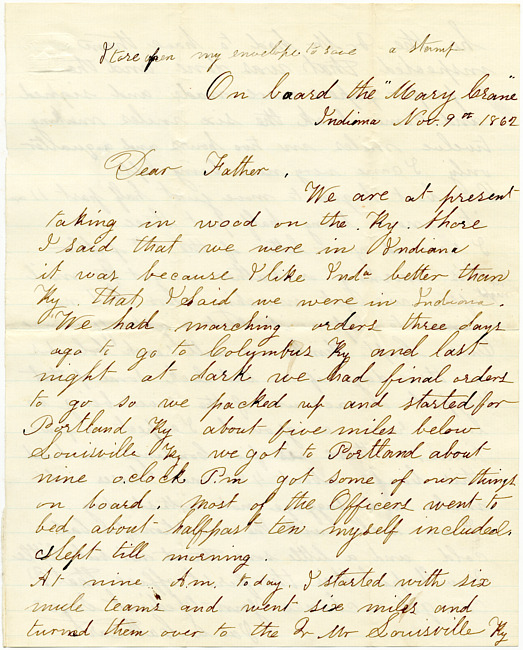 I tore open my envelope to save a stamp
On board the "Mary Crane"
Indiana Nov. 9th 1862
Dear Father.
We are at present
taking in wood on the Ky. shore
I said that we were in Indiana
it was because I like Inda better than
Ky. that I said we were in Indiana.
We had marching orders three days
ago to go to Columbus Ky and last
night at dark we had final orders
to go so we packed up and started for
Portland Ky about five miles below
Louisville Ky we got to Portland about
nine o.clock P.m got some of our things
on board. most of the Officers went to
bed about halfpast ten myself included.
slept till morning.
At nine Am. today. I started with six
mule teams and went six miles and
turned them over to the Qr Mr Louisville Ky